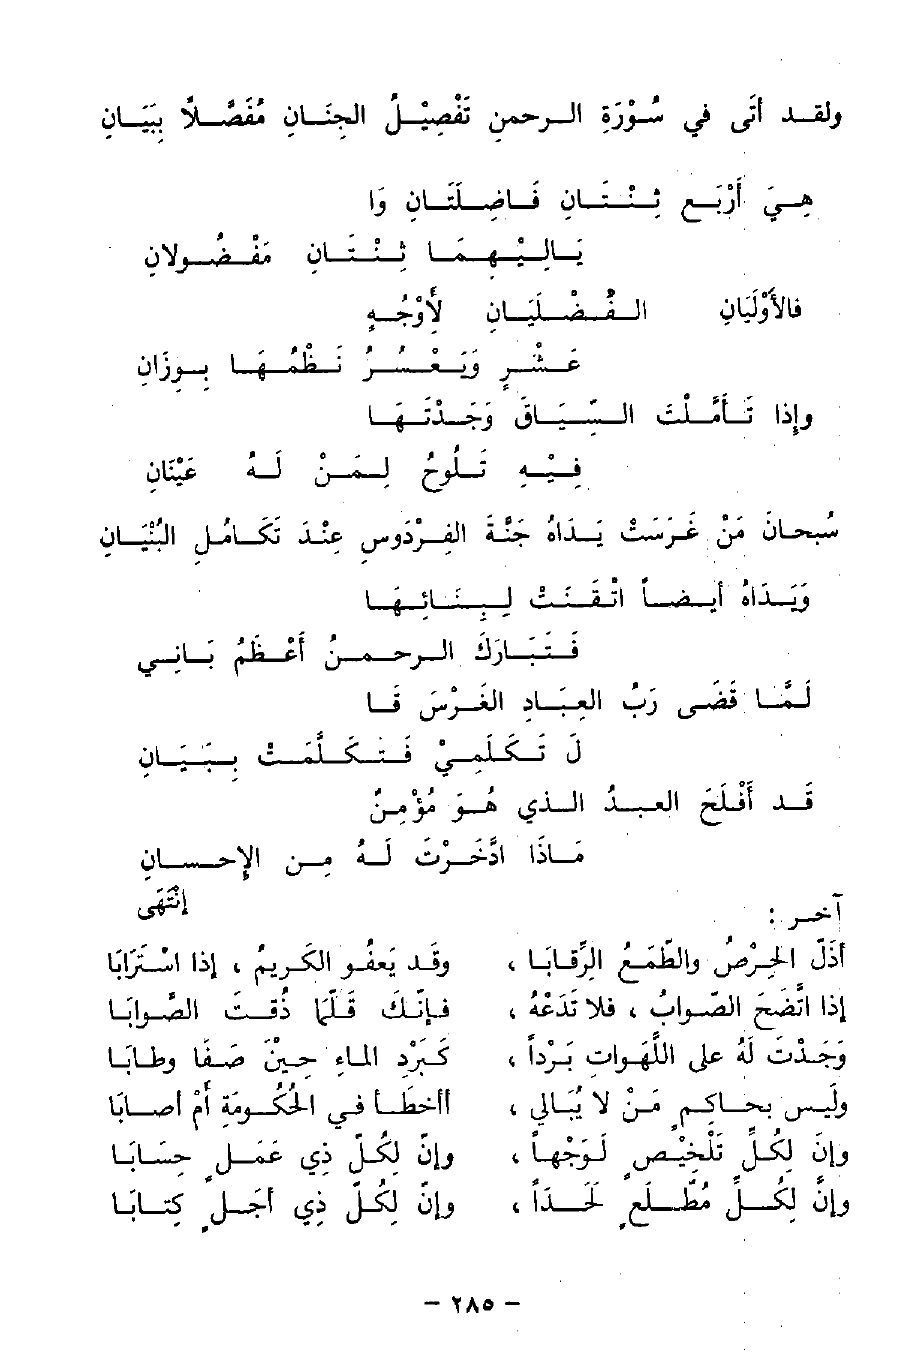 ولقد أَتَى في سُوْرَةِ الرحمنِ تَفْصِيْلُ الجِنَانِ مُفَصَّلاً بِبَيَانِ
هِيَ أَرْبَع ثِنْتَانِ فَاضِلَتَانِ وَا
يَالِيْهِمَا ثِنْتَانِ مَفْضُولانِ
فالأَوْلَيَانِ الفُضْلَيَانِ لأَوْجُهٍ
عَشْرٍ وَيَعْسُرُ نَظْمُهَا بِوزَانِ
وإِذا تَأَمَّلْتَ السِّيَاقَ وَجَدْتَهَا
فِيْهِ تَلُوحُ لِمَنْ لَهُ عَيْنَانِ
سُبحانَ مَنْ غَرَسَتْ يَدَاهُ جَنَّةَ الفِرْدَوسِ عِنْدَ تَكَامُلِ البُنْيَانِ
وَيَدَاهُ أيضاً اتْقَنَتْ لِبِنَائِهَا
فَتَبَارَكَ الرحمنُ أَعْظَمُ بَانِي
لَمَّا قَضَى رَبُّ العِبَادِ الغَرْسَ قَا
لَ تَكَلَّمِيْ فَتَكَلَّمَتْ بِبَيَانِ
قَد أَفْلَحَ العبدُ الذي هُوَ مُؤْمِنٌ
مَاذَا ادَّخَرْتَ لَهُ مِن الإِحسانِ
إِنْتَهَى
آخر :
أَذَلَّ الحِرْصُ والطَّمَعُ الرِّقابَا ، وقَد يَعفُو الكَرِيمُ ، إذا اسْتَرَابَا
إذا اتَّضَحَ الصَّوابُ ، فلا تَدَعْهُ ، فإِنَّكَ قَلَّمَا ذُقتَ الصَّوابَا
وَجَدْتَ لَهُ على اللَّهَواتِ بَرْداً ، كَبَرْدِ الماءِ حِيْنَ صَفَا وطابَا
ولَيسَ بحاكِمٍ مَنْ لا يُبَالي ، أأخطَأ في الحُكُومَةِ أَمْ أصابَا
وإِنَ لِكُلِّ تَلْخِيْصٍ لَوَجْهاً ، وإِنَّ لِكُلِّ ذِي عَمَلٍ حِسَابَا
وإِنَّ لِكُلِّ مُطَّلَعٍ لَحَدّاً ، وإِنَّ لِكُلِّ ذِي أَجَلٍ كِتَابَا
- ٢٨٥ -